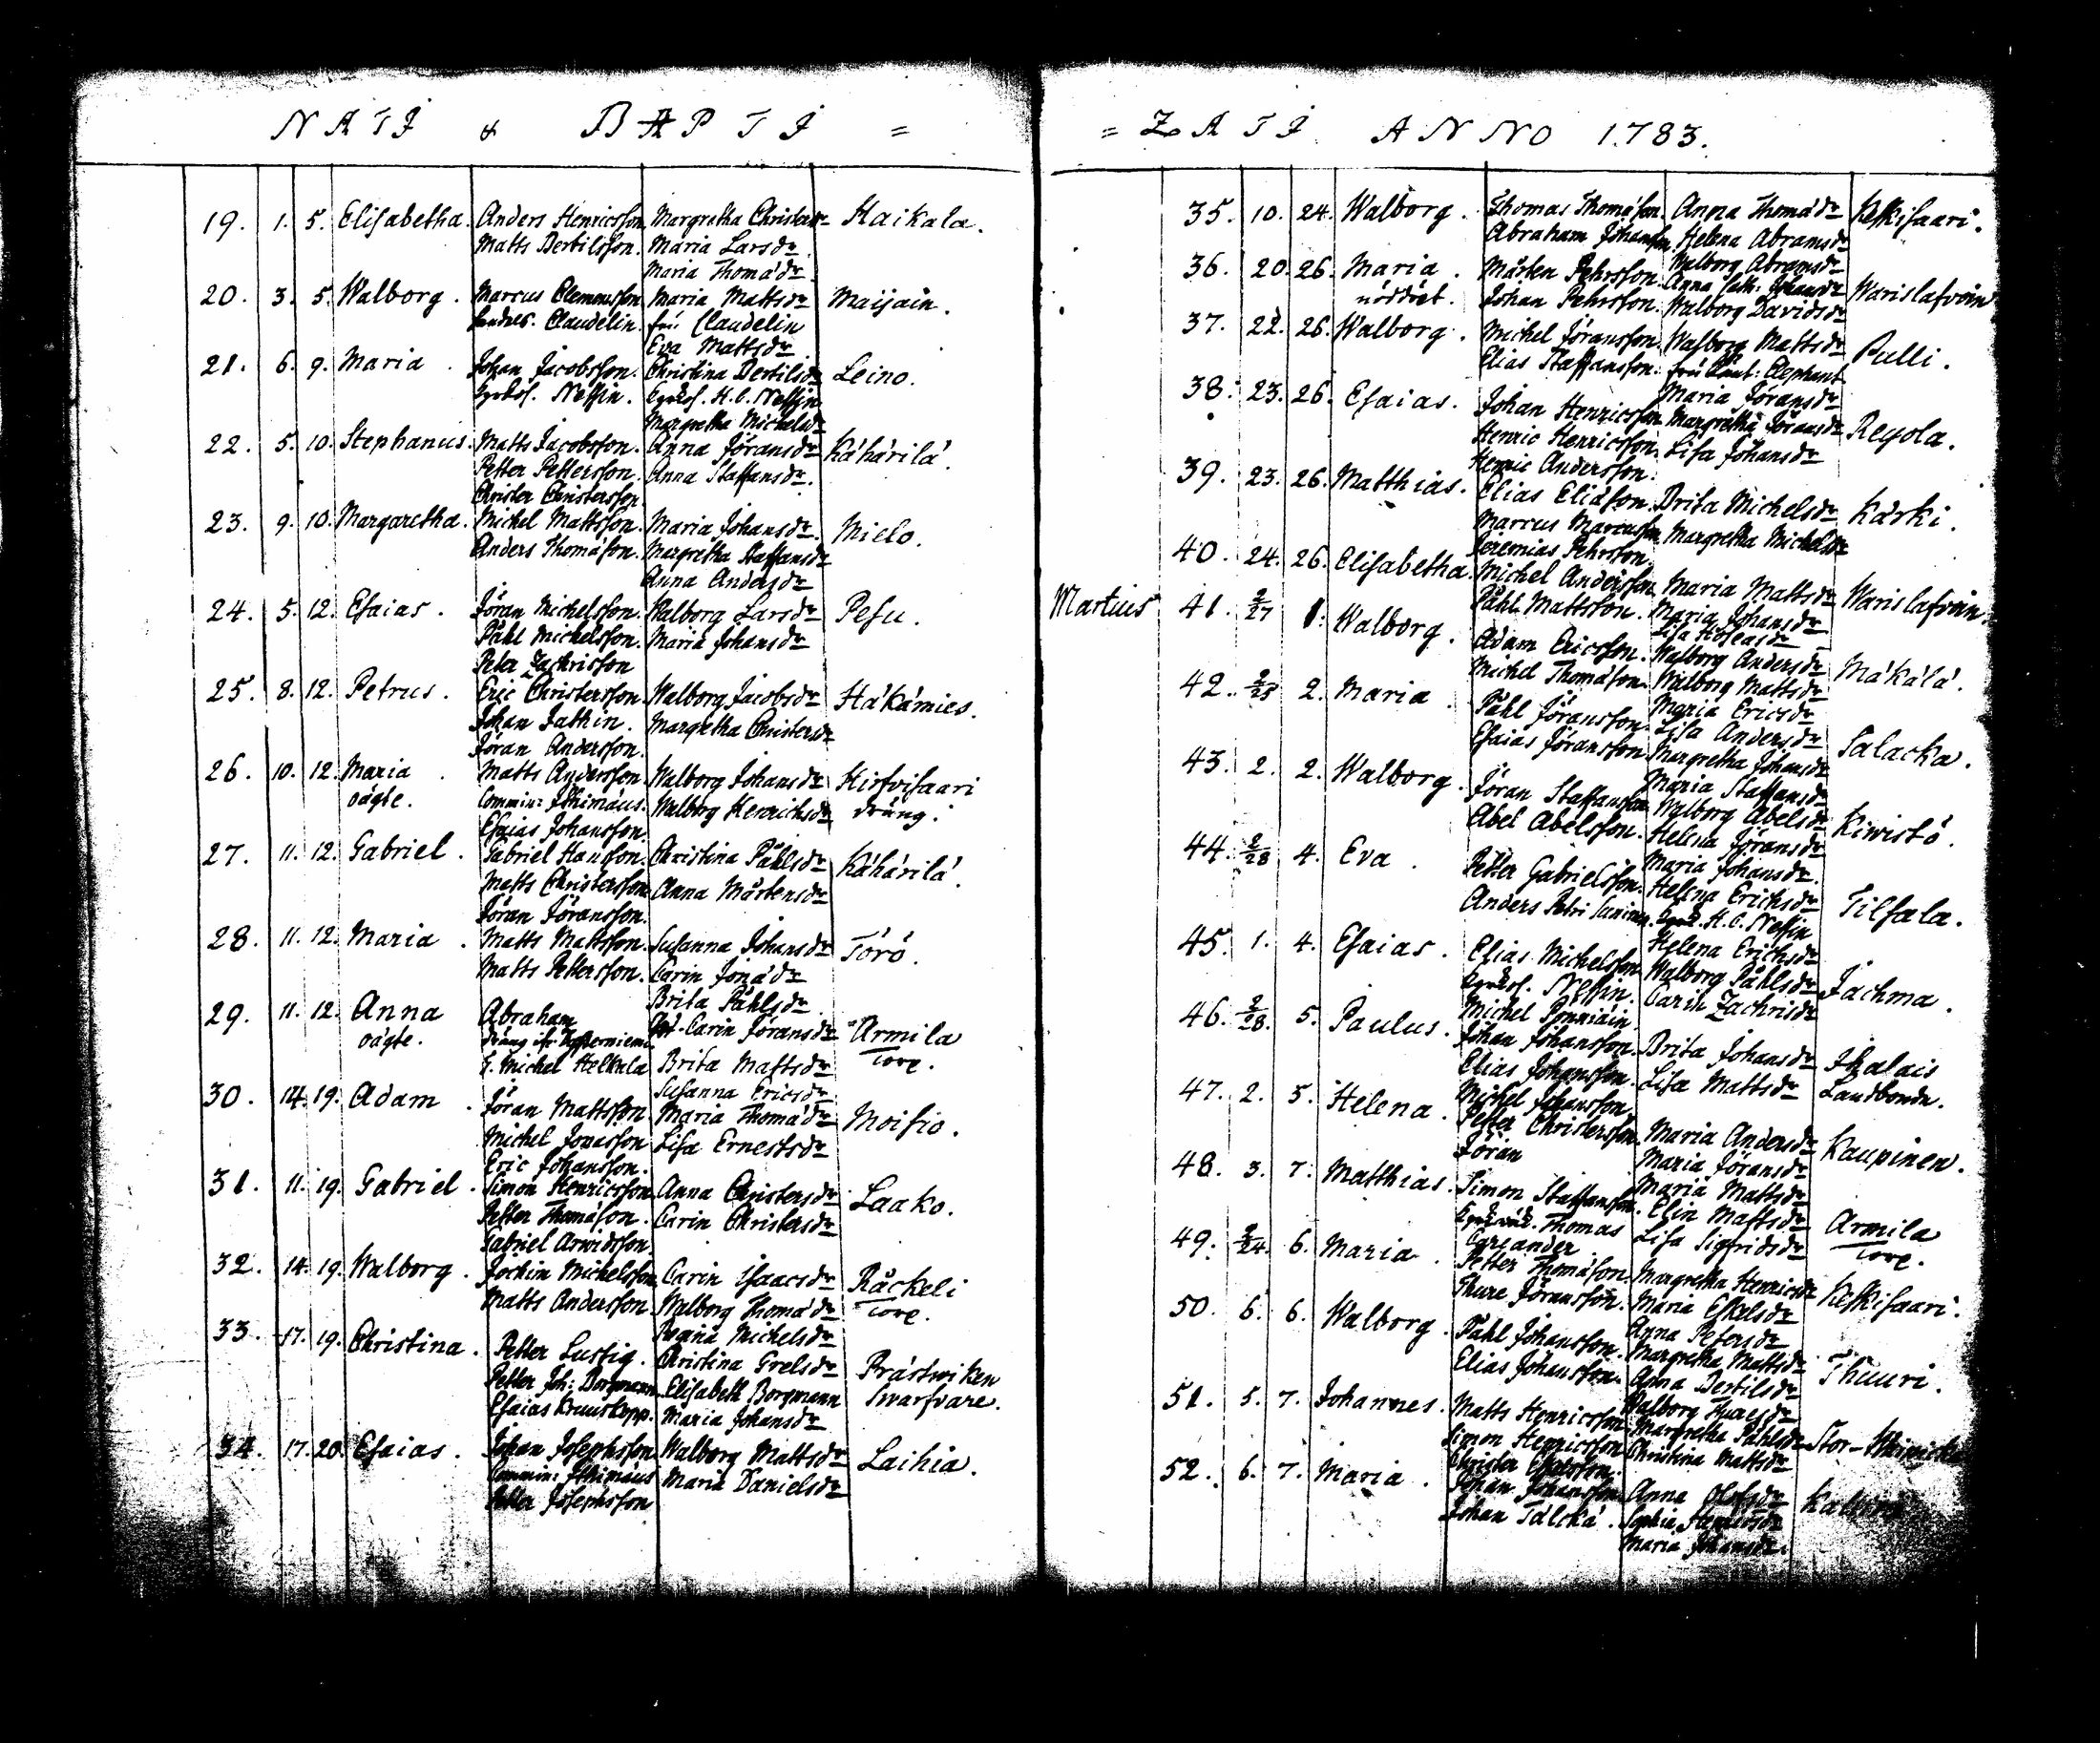 NATI & BAPTI =
19. 1. 5. Elisabetha. Anders Henricsson Margretha Christersdr Haikala.
Matts Bertilsson. Maria Larsdr
Maria Thomædr
20. 3. 5. Walborg. Marcus Clemmesson Maria Mattsdr Maijain.
Claudelin. fru Claudelin
Eva Mattsdr
21. 6. 9. Maria. Johan Jacobsson. Christina Bertilsdr Leino.
Nessin. H. C. Nessin
Margretha Michelsdr
22. 5. 10. Stephanus. Matts Jacobsson. Anna Jöransdr Káhárilá.
Petter Pettersson. Anna Staffansdr.
Christer Christersson
23. 9. 10. Margaretha. Michel Mattsson. Maria Johansdr. Mielo.
Anders Thomæson. Margretha Staffansdr
Anna Andersdr
24. 5. 12. Esaias. Jöran Michelsson. Walborg Larsdr Pesu.
Påhl Michelsson. Maria Johansdr
Peter Zachrisson
25. 8. 12. Petrus. Eric Christersson Walborg Jacobsdr Hákámies.
Johan Margretha Christersdr
Jöran Andersson.
26. 10. 12. Maria. Matts Andersson Walborg Johansdr Hirfvisaari
oágte. Commin: Walborg Henrichsdr dräng.
Esaias Johansson
27. 11. 12. Gabriel. Gabriel Hansson. Christina Påhlsdr Káhárilá.
Matts Christersson Anna Mårtensdr
Jöran Jöransson.
28. 11. 12. Maria. Matts Mattsson. Susanna Johansdr Törö.
Matts Pettersson. Carin Jonædr
Brita Påhlsdr
29. 11. 12. Anna Abraham Carin Jöransdr Armila
oágte. Dräng Torp.
S. Michel Helkala Brita Mattsdr
Susanna Ericsdr
30. 14. 19. Adam. Jöran Mattsson Maria Thomædr Moisio.
Michel Jonasson Lisa Ernestsdr
Eric Johansson.
31. 11. 19. Gabriel. Simon Henricsson Anna Christersdr Laako.
Petter Thomæson. Carin Christersdr
Gabriel Arwidsson
32. 14. 19. Walborg. Jochim Michelsson Carin Isaacsdr Råckeli
Matts Andersson Walborg Thomædr Torp.
Regina Michelsdr
33. 17. 19. Christina. Petter Lustig. Christina Grelsdr Prástwiken
Petter Joh: Borgmann Elisabeth Borgmann Swarfvare.
Esaias Kruuskopp. Maria Johansdr
34. 17. 20. Esaias. Johan Josephsson Walborg Mattsdr Laihia.
Commin: Maria Danielsdr
Petter Josephsson
= ZATI ANNO 1783.
35. 10. 24. Walborg. Thomas Thomæson Anna Thomædr Keskisaari.
Abraham Johansson Helena Abramsdr
Walborg Abramsdr
36. 20. 26. Maria. Mårten Pehrsson. Anna Cath: Johansdr Warislafvoin
nöddöpt. Johan Pehrsson. Walborg Davidsdr
37. 22. 26. Walborg. Michel Jöransson. Walborg Mattsdr Pulli.
Elias Staffansson. fru Elephant
Maria Jöransdr
38. 23. 26. Esaias. Johan Henricsson Margretha Jöransdr Reyola.
Henric Henricsson. Lisa Johansdr
Henric Andersson.
39. 23. 26. Matthias. Elias Eliæson. Brita Michelsdr Kárki.
Marcus Marcusson Margretha Michelsdr
Jeremias Pehrsson.
40. 24. 26. Elisabetha. Michel Andersson Maria Mattsdr Warislafvoin.
Påhl Mattsson. Maria Johansdr
Lisa
Martius 41. 2/27 1. Walborg. Adam Ericsson. Walborg Andersdr Mákálá.
Michel Thomæson. Walborg Mattsdr
Maria Ericsdr
42. 2/25 2. Maria. Påhl Jöransson. Lisa Andersdr Salacka.
Esaias Jöransson Margretha Johansdr
Maria Staffansdr
43. 2. 2. Walborg. Jöran Staffansson Walborg Abelsdr Kiwistö.
Abel Abelsson. Helena Jöransdr
Maria Johansdr.
44. 2/28 4. Eva. Petter Gabrielsson. Helena Erichsdr Tilsala.
Anders Petri H. C. Nessin
Helena Erichsdr
45. 1. 4. Esaias. Elias Michelsson Walborg Påhlsdr Jachma.
Nessin. Carin Zachrisdr
Michel
46. 2/28. 5. Paulus. Johan Johansson. Brita Johansdr Ihalais
Elias Johansson. Lisa Mattsdr Landbonde.
Michel Johansson
47. 2. 5. Helena. Petter Christersson Maria Andersdr Kaupinen.
Jöran Maria Jöransdr
Maria Mattsdr
48. 3. 7. Matthias. Simon Staffansson. Elin Mattsdr Armila
Thomas Lisa Sigfridsdr Torp.
49. 2/24. 6. Maria. Petter Thomæson. Margretha Henricsdr Keskisaari.
Thure Jöransson. Maria Eskelsdr
Anna Petersdr
50. 6. 6. Walborg. Påhl Johansson. Margretha Mattsdr Thuuri.
Elias Johansson. Anna Bertilsdr
Walborg
51. 5. 7. Johannes. Matts Henricsson Margretha Påhlsdr Stor-
Simon Henricsson Christina Mattsdr
Christer
52. 6. 7. Maria. Johan Johansson Anna Olofsdr
Johan Tálcká. Sophia
Maria Johansdr.